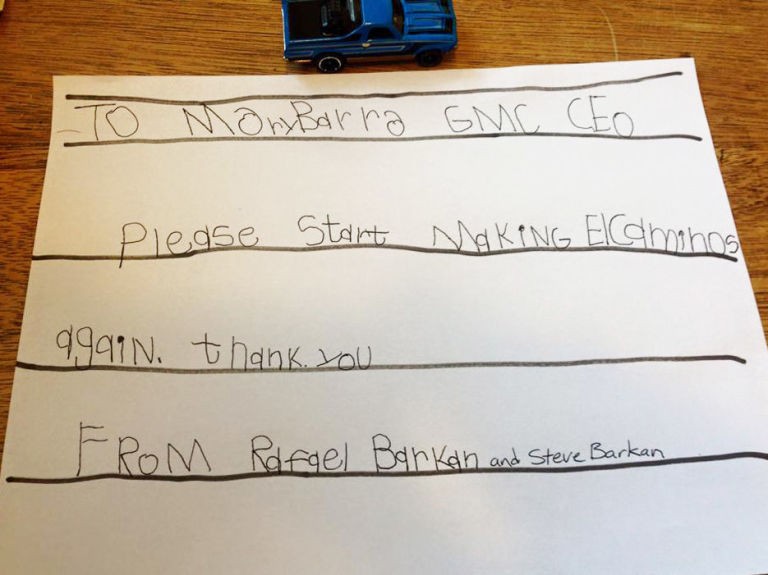 TO MaryBarra GMC CEO
Please Start MaKiNG ElCaminos
again. thank.you
FRoM Rafael Barkan and Steve Barkan